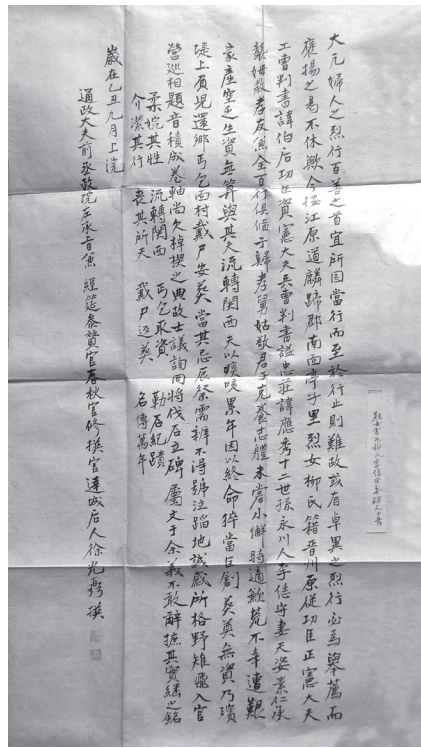 大凡婦人之烈行百善之首宜所固當行而至於行止則難故或有卓異之烈行必爲擧薦而
褒揚之曷不休歟今撿江原道麟蹄郡南面亭子里烈女柳氏籍晋州原從功臣正憲大夫
工曹判書諱伯后功臣資憲大夫兵曹判書諡忠莊諱應秀十二世孫永川人李佸守妻天姿素仁承
襲姆敎孝友兼全百行俱備于歸孝舅姑敬君子克養志體未嘗小懈時適歉荒不幸遭艱
家產空乏生資無算與其夫流轉関西夫以咳咳累年因以終命猝當巨創葬奠無資乃殯
堤上負児還鄉丐乞面村戴尸安葬當其忌辰祭需辨不得號泣蹈地誠感所格野雉飛入官
營巡相題音積成卷軸尚欠棹楔之典故士議詢同將伐石立碑 屬文于余義不敢辭摭其實繼之銘
柔婉其性 流轉関西 丐乞取資 勒石紀蹟
介潔其行 喪其所天 戴尸返葬 名傳萬年
歲在乙丑九月上浣
通政大夫前承政院左承旨兼 經筵參贊官春秋官修撰官達城后人徐光 撰